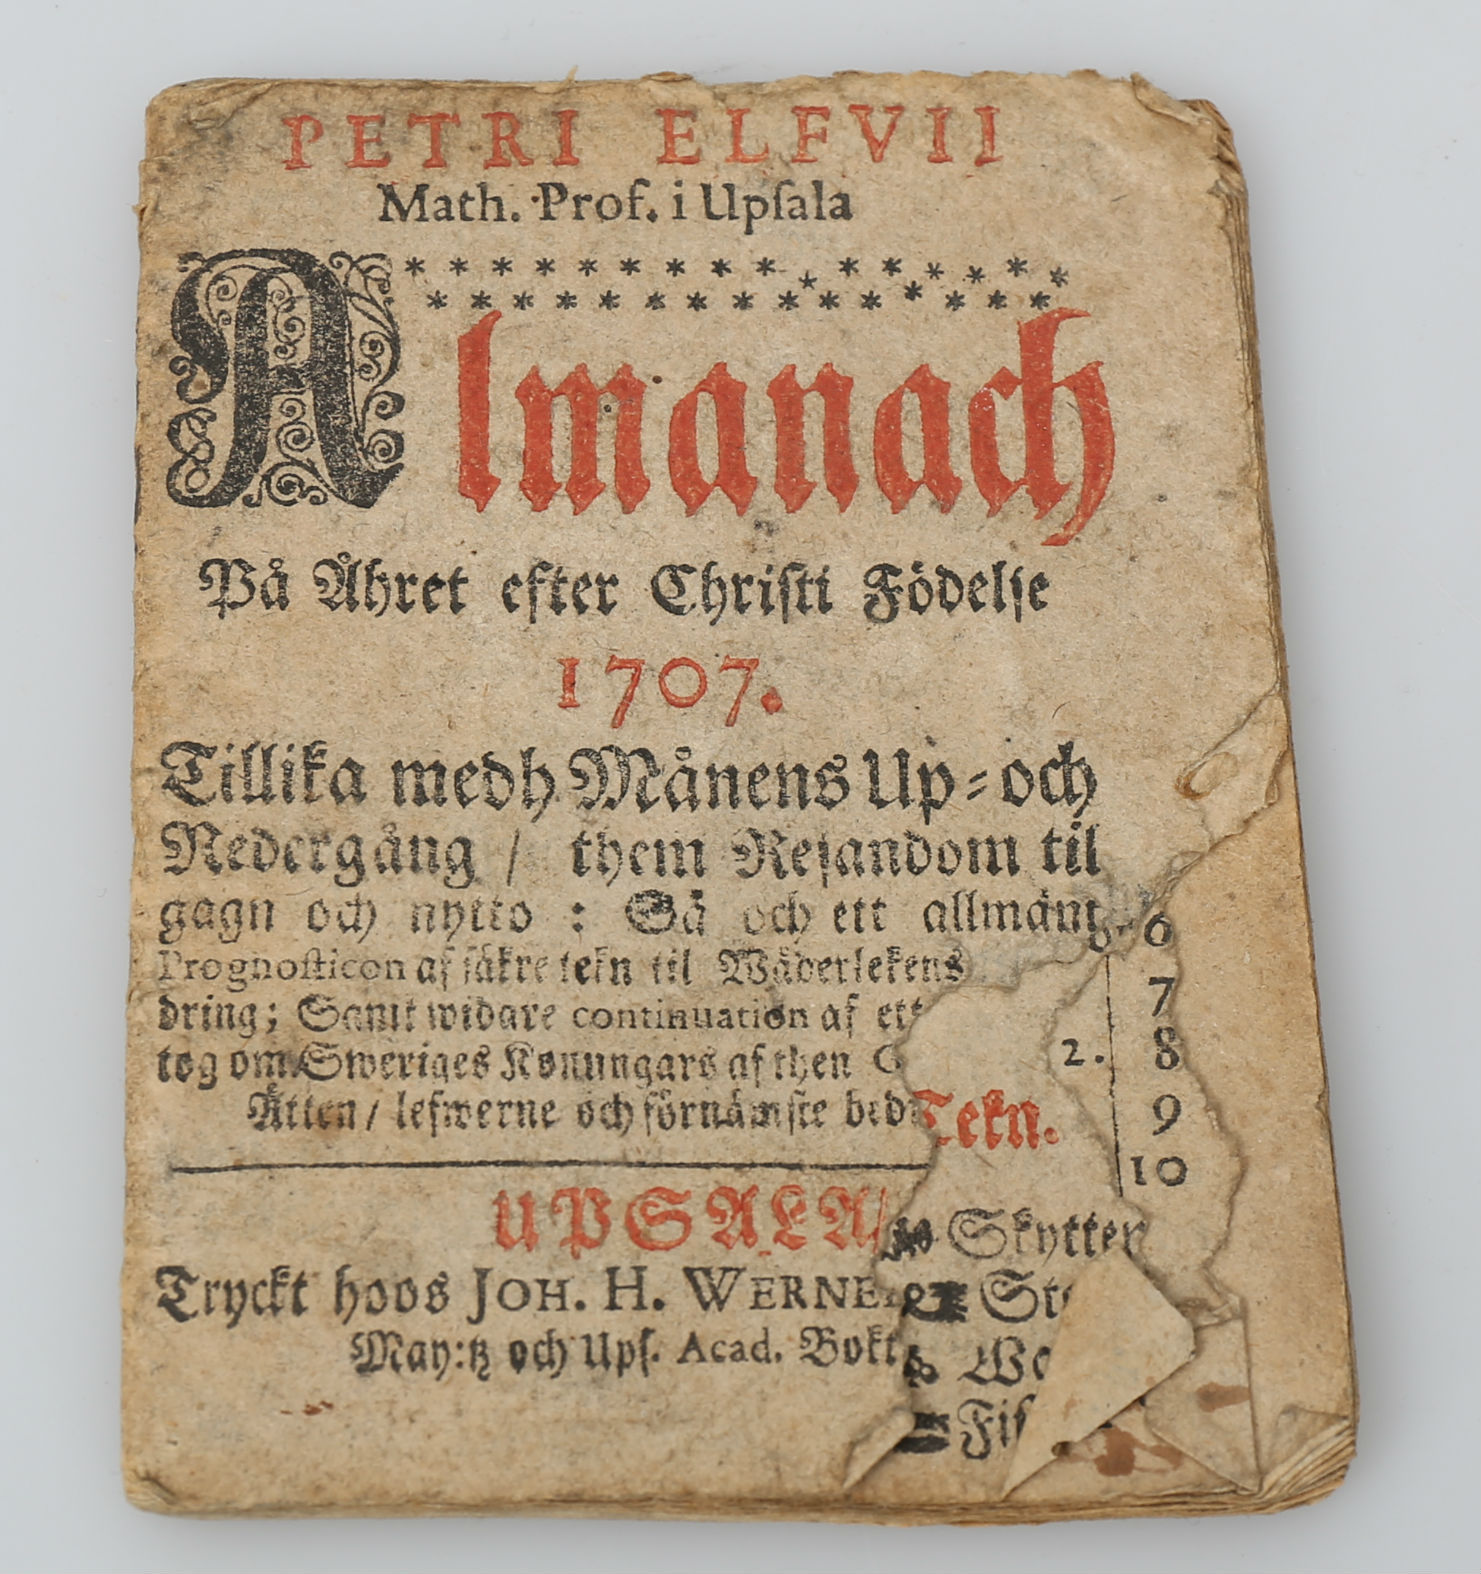 PETRI ELFVII
Math. Prof. i Upſala
Almanach
På Åhret efter Chriſti Födelſe
1707.
Tillika medh Månens Up- och
Nedergång / them Reſandom til
gagn och nytto : Så och ett allmänt
Prognoſticon af ſäkre tekn til Wäderlekens
dring; Samt widare continuation af ett
tog om Sweriges Konungars af then
Ätten / lefwerne och förnämſte
UPSALA
Tryckt hoos JOH. H. WERNE
May:tz och Upſ. Acad. Bokt
6
7
2. 8
9
Tekn.
10
Skytter
St
We
Fiſ